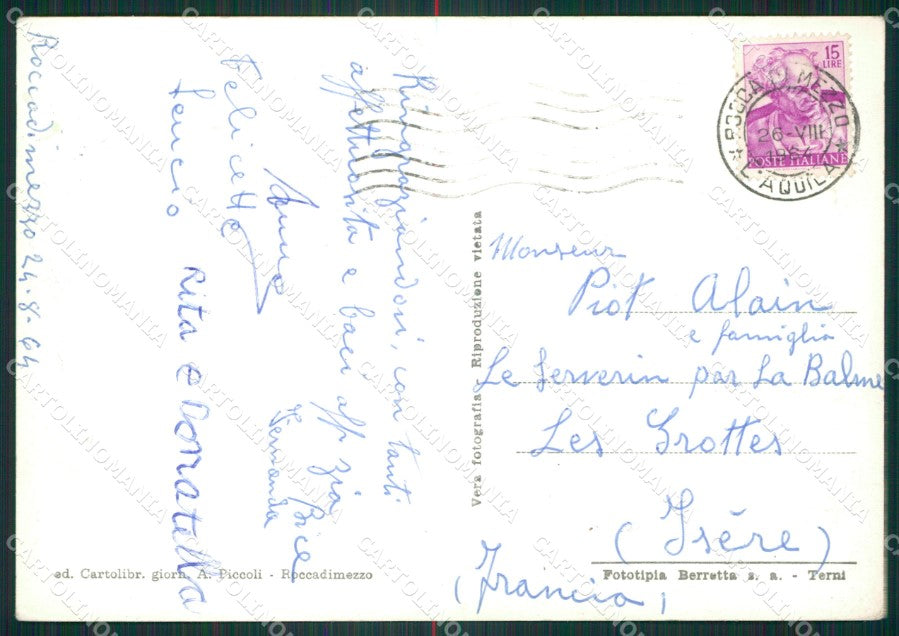 Roccadimezzo 24-8-64
Ringraziandovi, con tanti
affettuosità e baci aff zia
Bice
Fernanda
Felicetta
Rita e Donatella
15
LIRE
POSTE ITALIANE
ROCCA DI MEZZO
26-VIII
1964
L'AQUILA
Monseur
Piot Alain
e famiglia
Le Serverin par La Balme
Les Grottes
(Isére)
(Francia)
Vera fotografia - Riproduzione vietata
ed. Cartolibr. giorn. A. Piccoli - Roccadimezzo
Fototipia Berretta s. a. - Terni
CARTOLINOMANIA